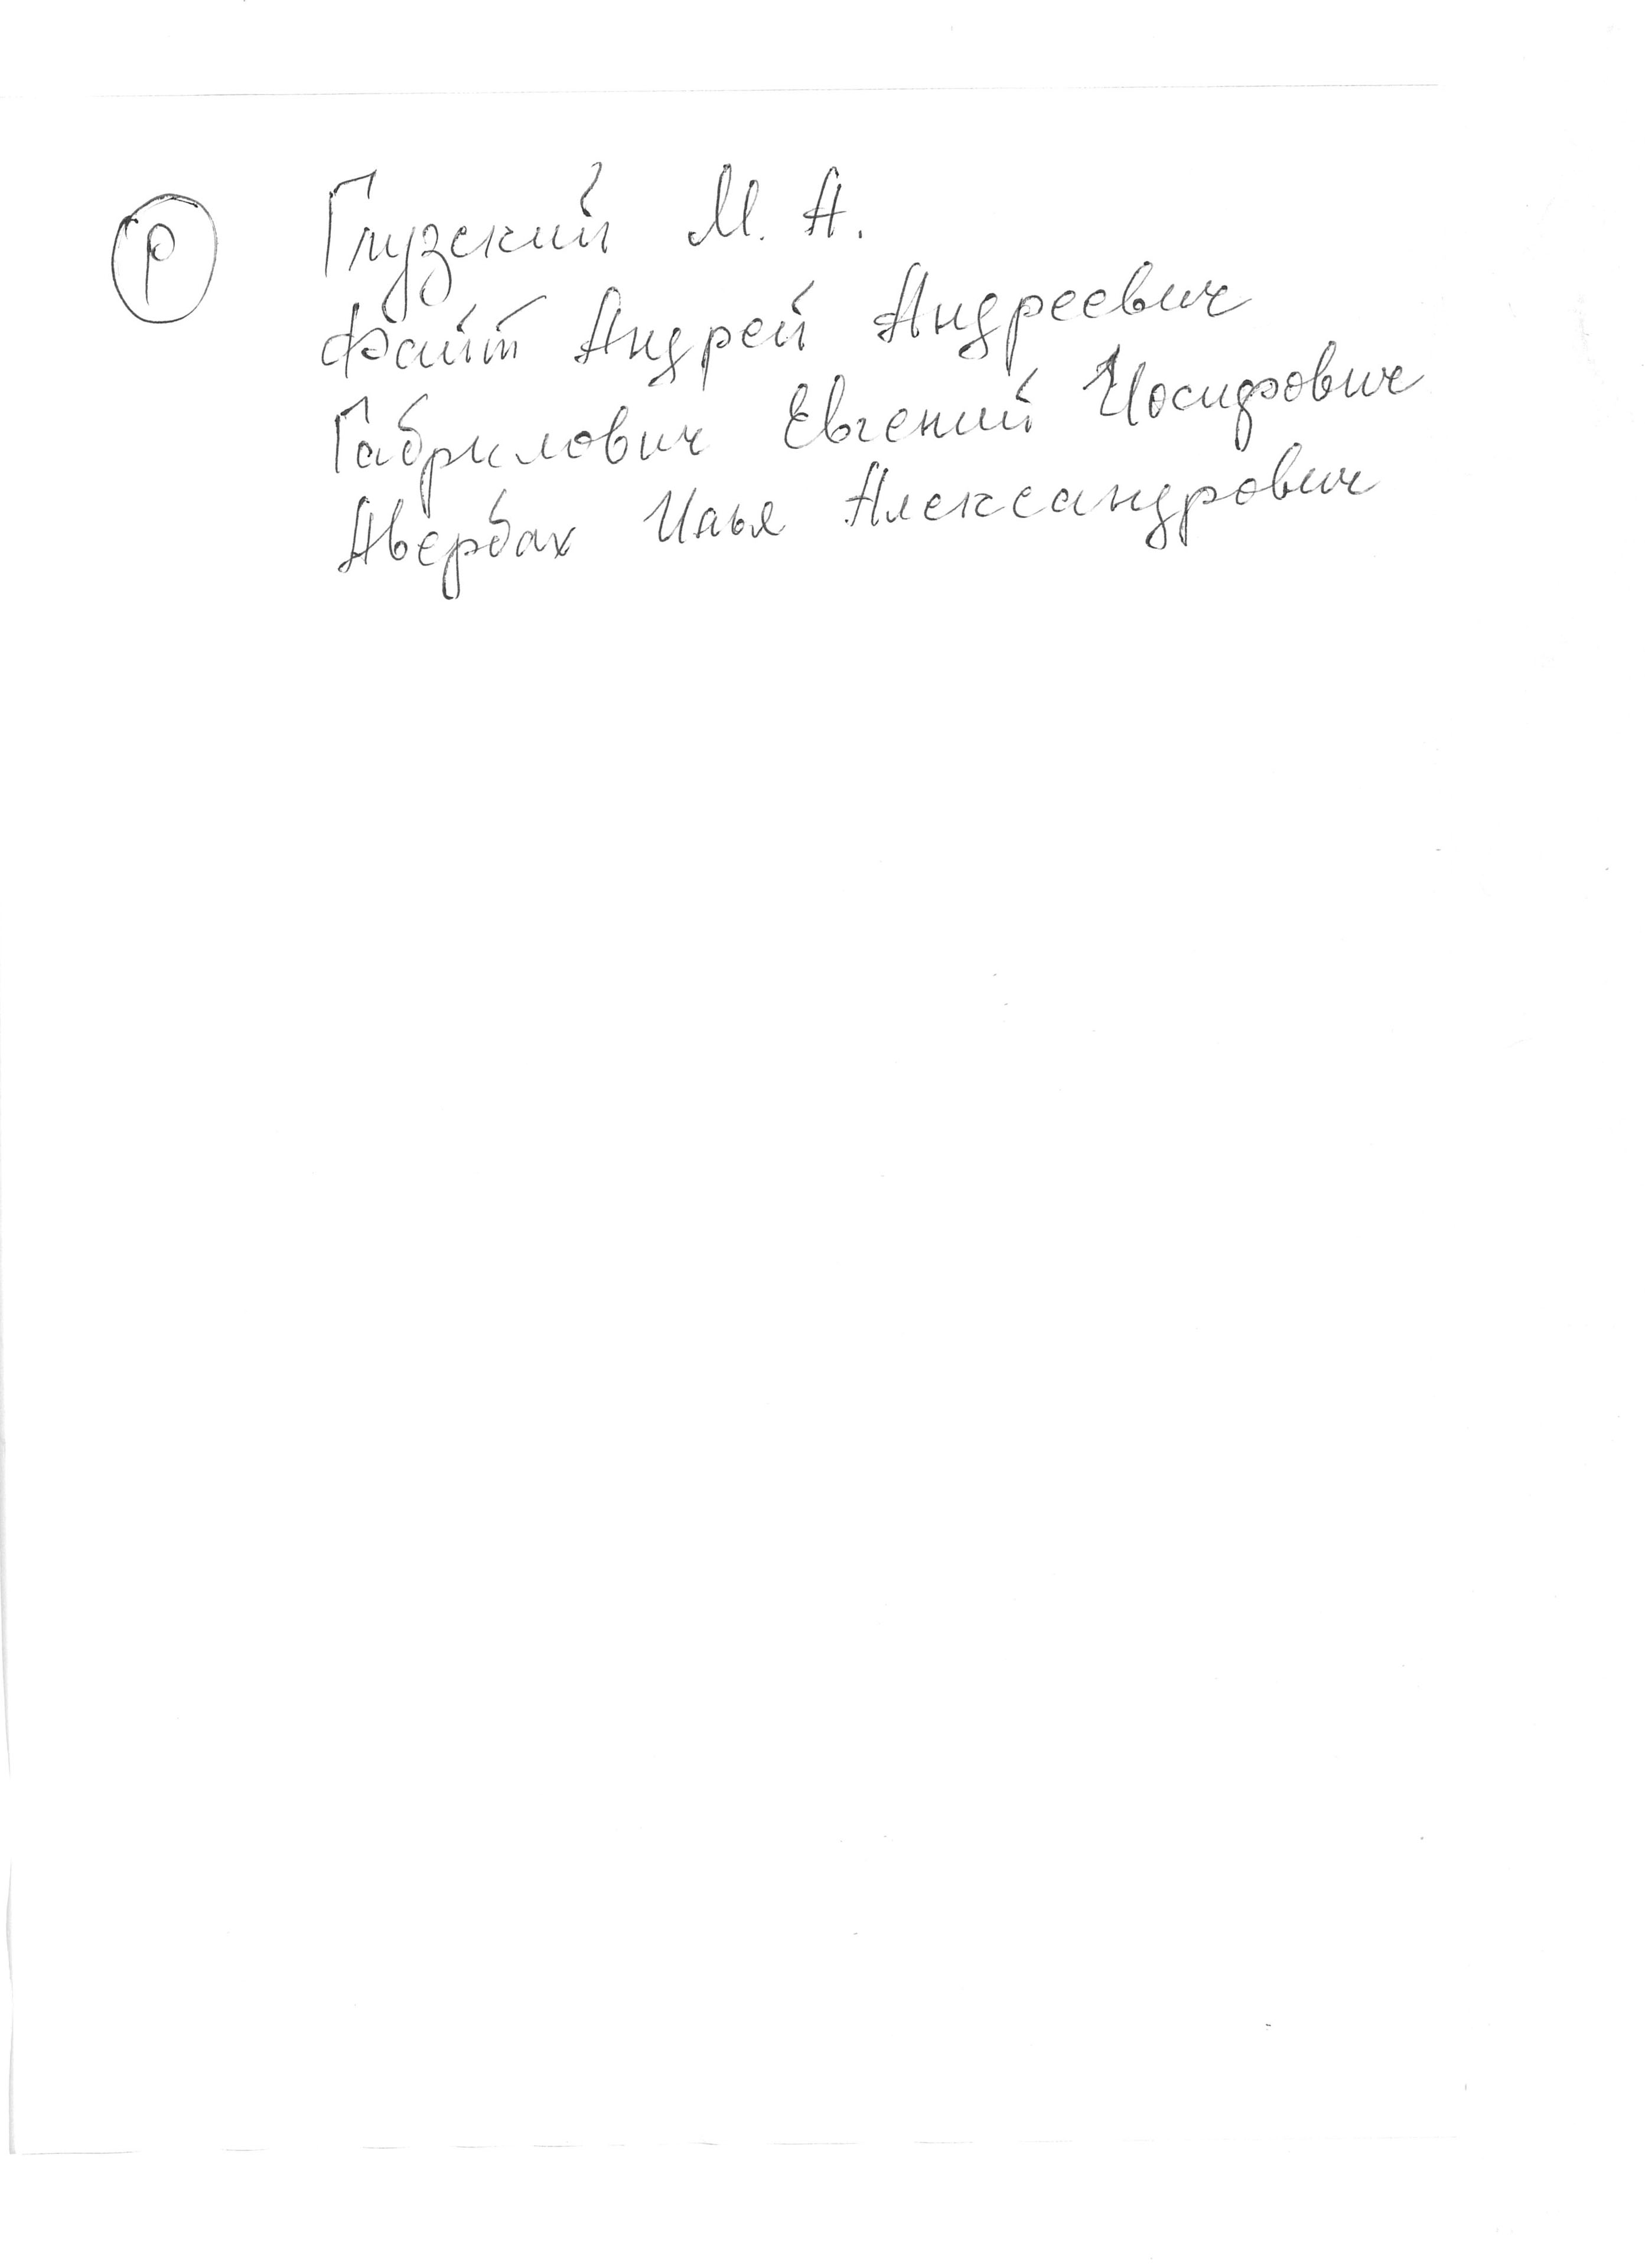 Р Глузский М. А.
Файт Андрей Андреевич
Габрилович Евгений Иосифович
Авербах Илья Александрович